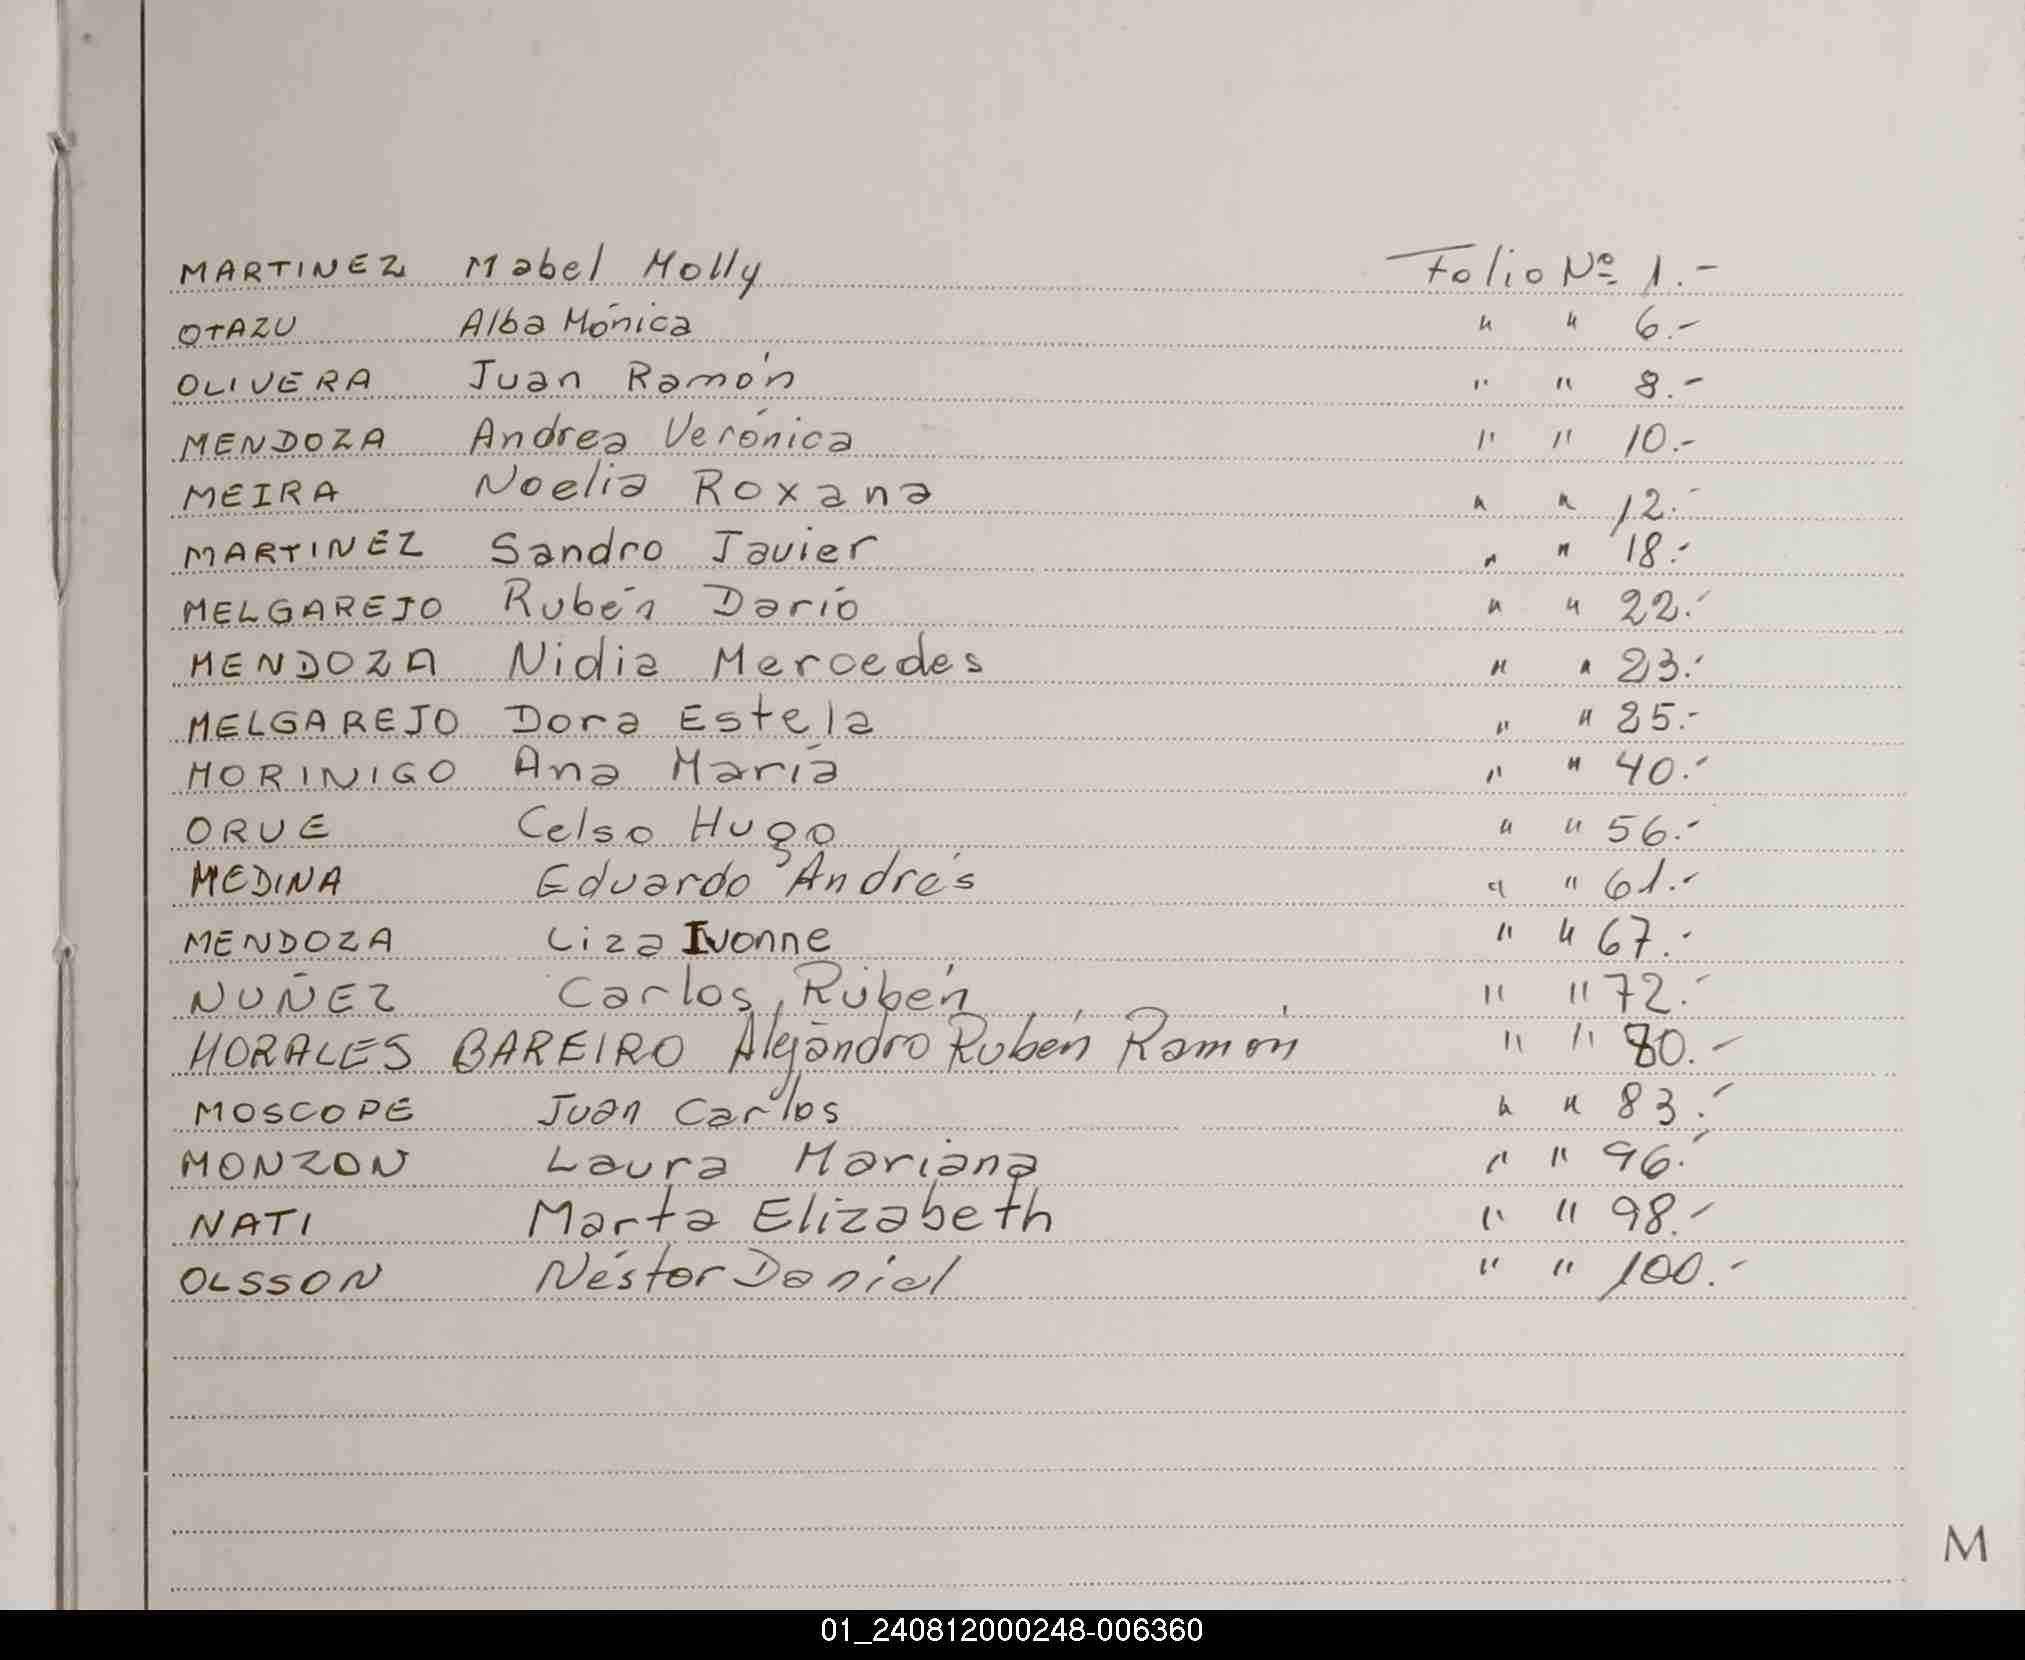 MARTINEZ Mabel Molly Folio Nº 1.-
OTAZU Alba Mónica " " 6.-
OLIVERA Juan Ramón " " 8.-
MENDOZA Andrea Verónica " " 10.-
MEIRA Noelia Roxana " " 12.-
MARTINEZ Sandro Javier " " 18.-
MELGAREJO Rubén Darío " " 22.-
MENDOZA Nidia Mercedes " " 23.-
MELGAREJO Dora Estela " " 25.-
MORINIGO Ana María " " 40.-
ORUE Celso Hugo " " 56.-
MEDINA Eduardo Andrés " " 61.-
MENDOZA Liza Ivonne " " 67.-
NUÑEZ Carlos Rubén " " 72.-
MORALES BAREIRO Alejandro Rubén Ramón " " 80.-
MOSCOPE Juan Carlos " " 83.-
MONZON Laura Mariana " " 96.-
NATI Marta Elizabeth " " 98.-
OLSSON Néstor Daniel " " 100.-
M
01_240812000248-006360